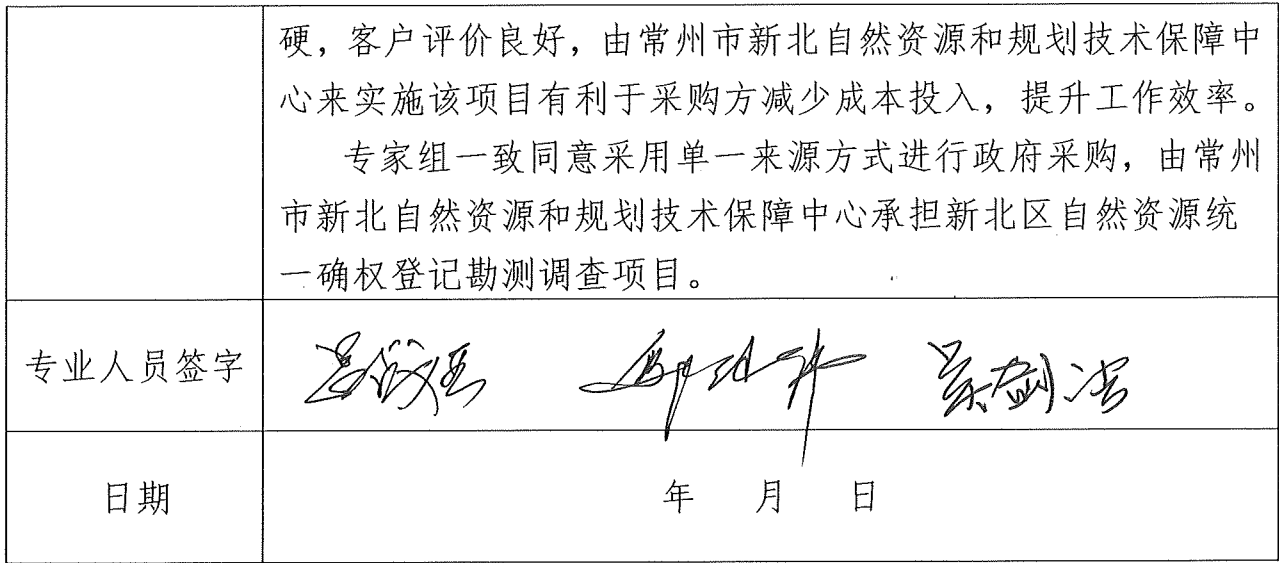 硬，客户评价良好，由常州市新北自然资源和规划技术保障中
心来实施该项目有利于采购方减少成本投入，提升工作效率。
专家组一致同意采用单一来源方式进行政府采购，由常州
市新北自然资源和规划技术保障中心承担新北区自然资源统
一确权登记勘测调查项目。
专业人员签字
日期
年 月 日